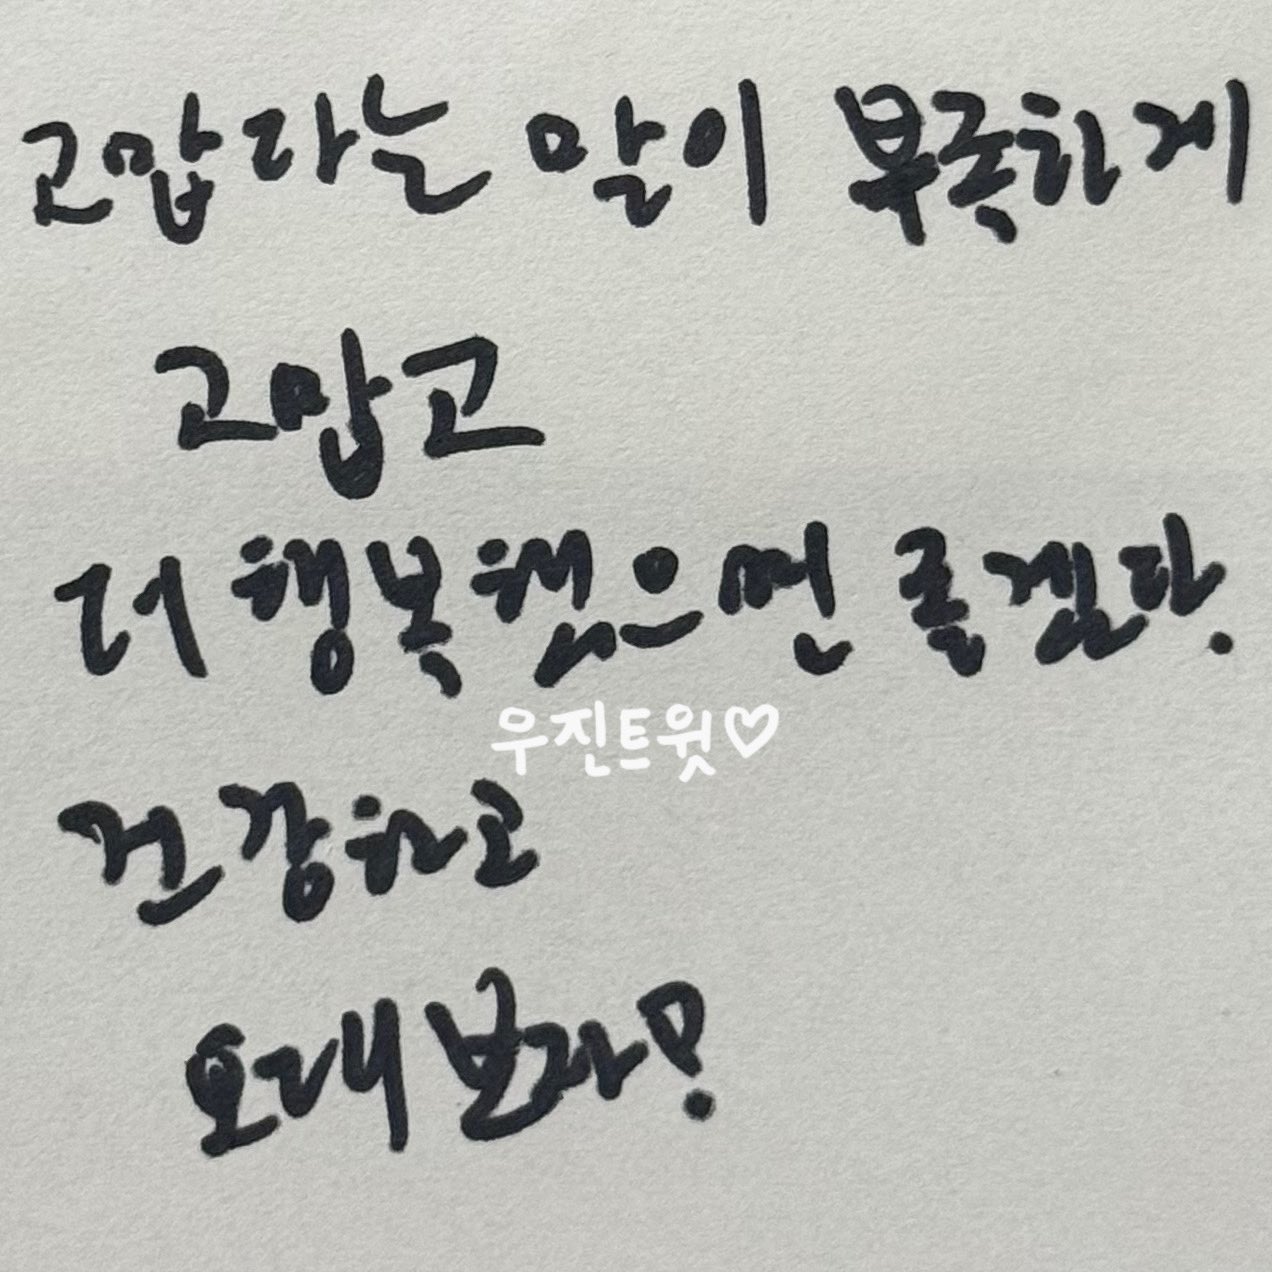 고맙다는 말이 부족하게
고맙고
더 행복했으면 좋겠다.
우진트윗♡
건강하고
오래보자!